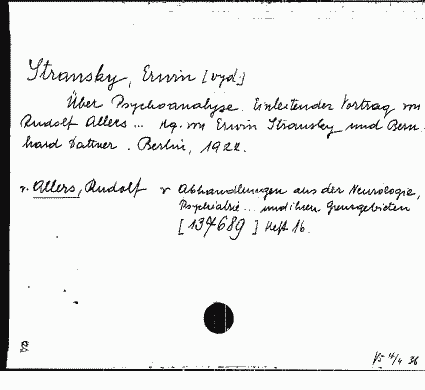 Stransky, Erwin [vyd.]
Über Psychoanalyse. Einleitender Vortrag von
Rudolf Allers ... Hg. von Erwin Stransky und Bern-
hard Dattner. Berlin, 1922.
v. Allers, Rudolf v Abhandlungen aus der Neurologie,
Psychiatrie ... und ihren Grenzgebieten
[137689] Heft 16.
4/4 36